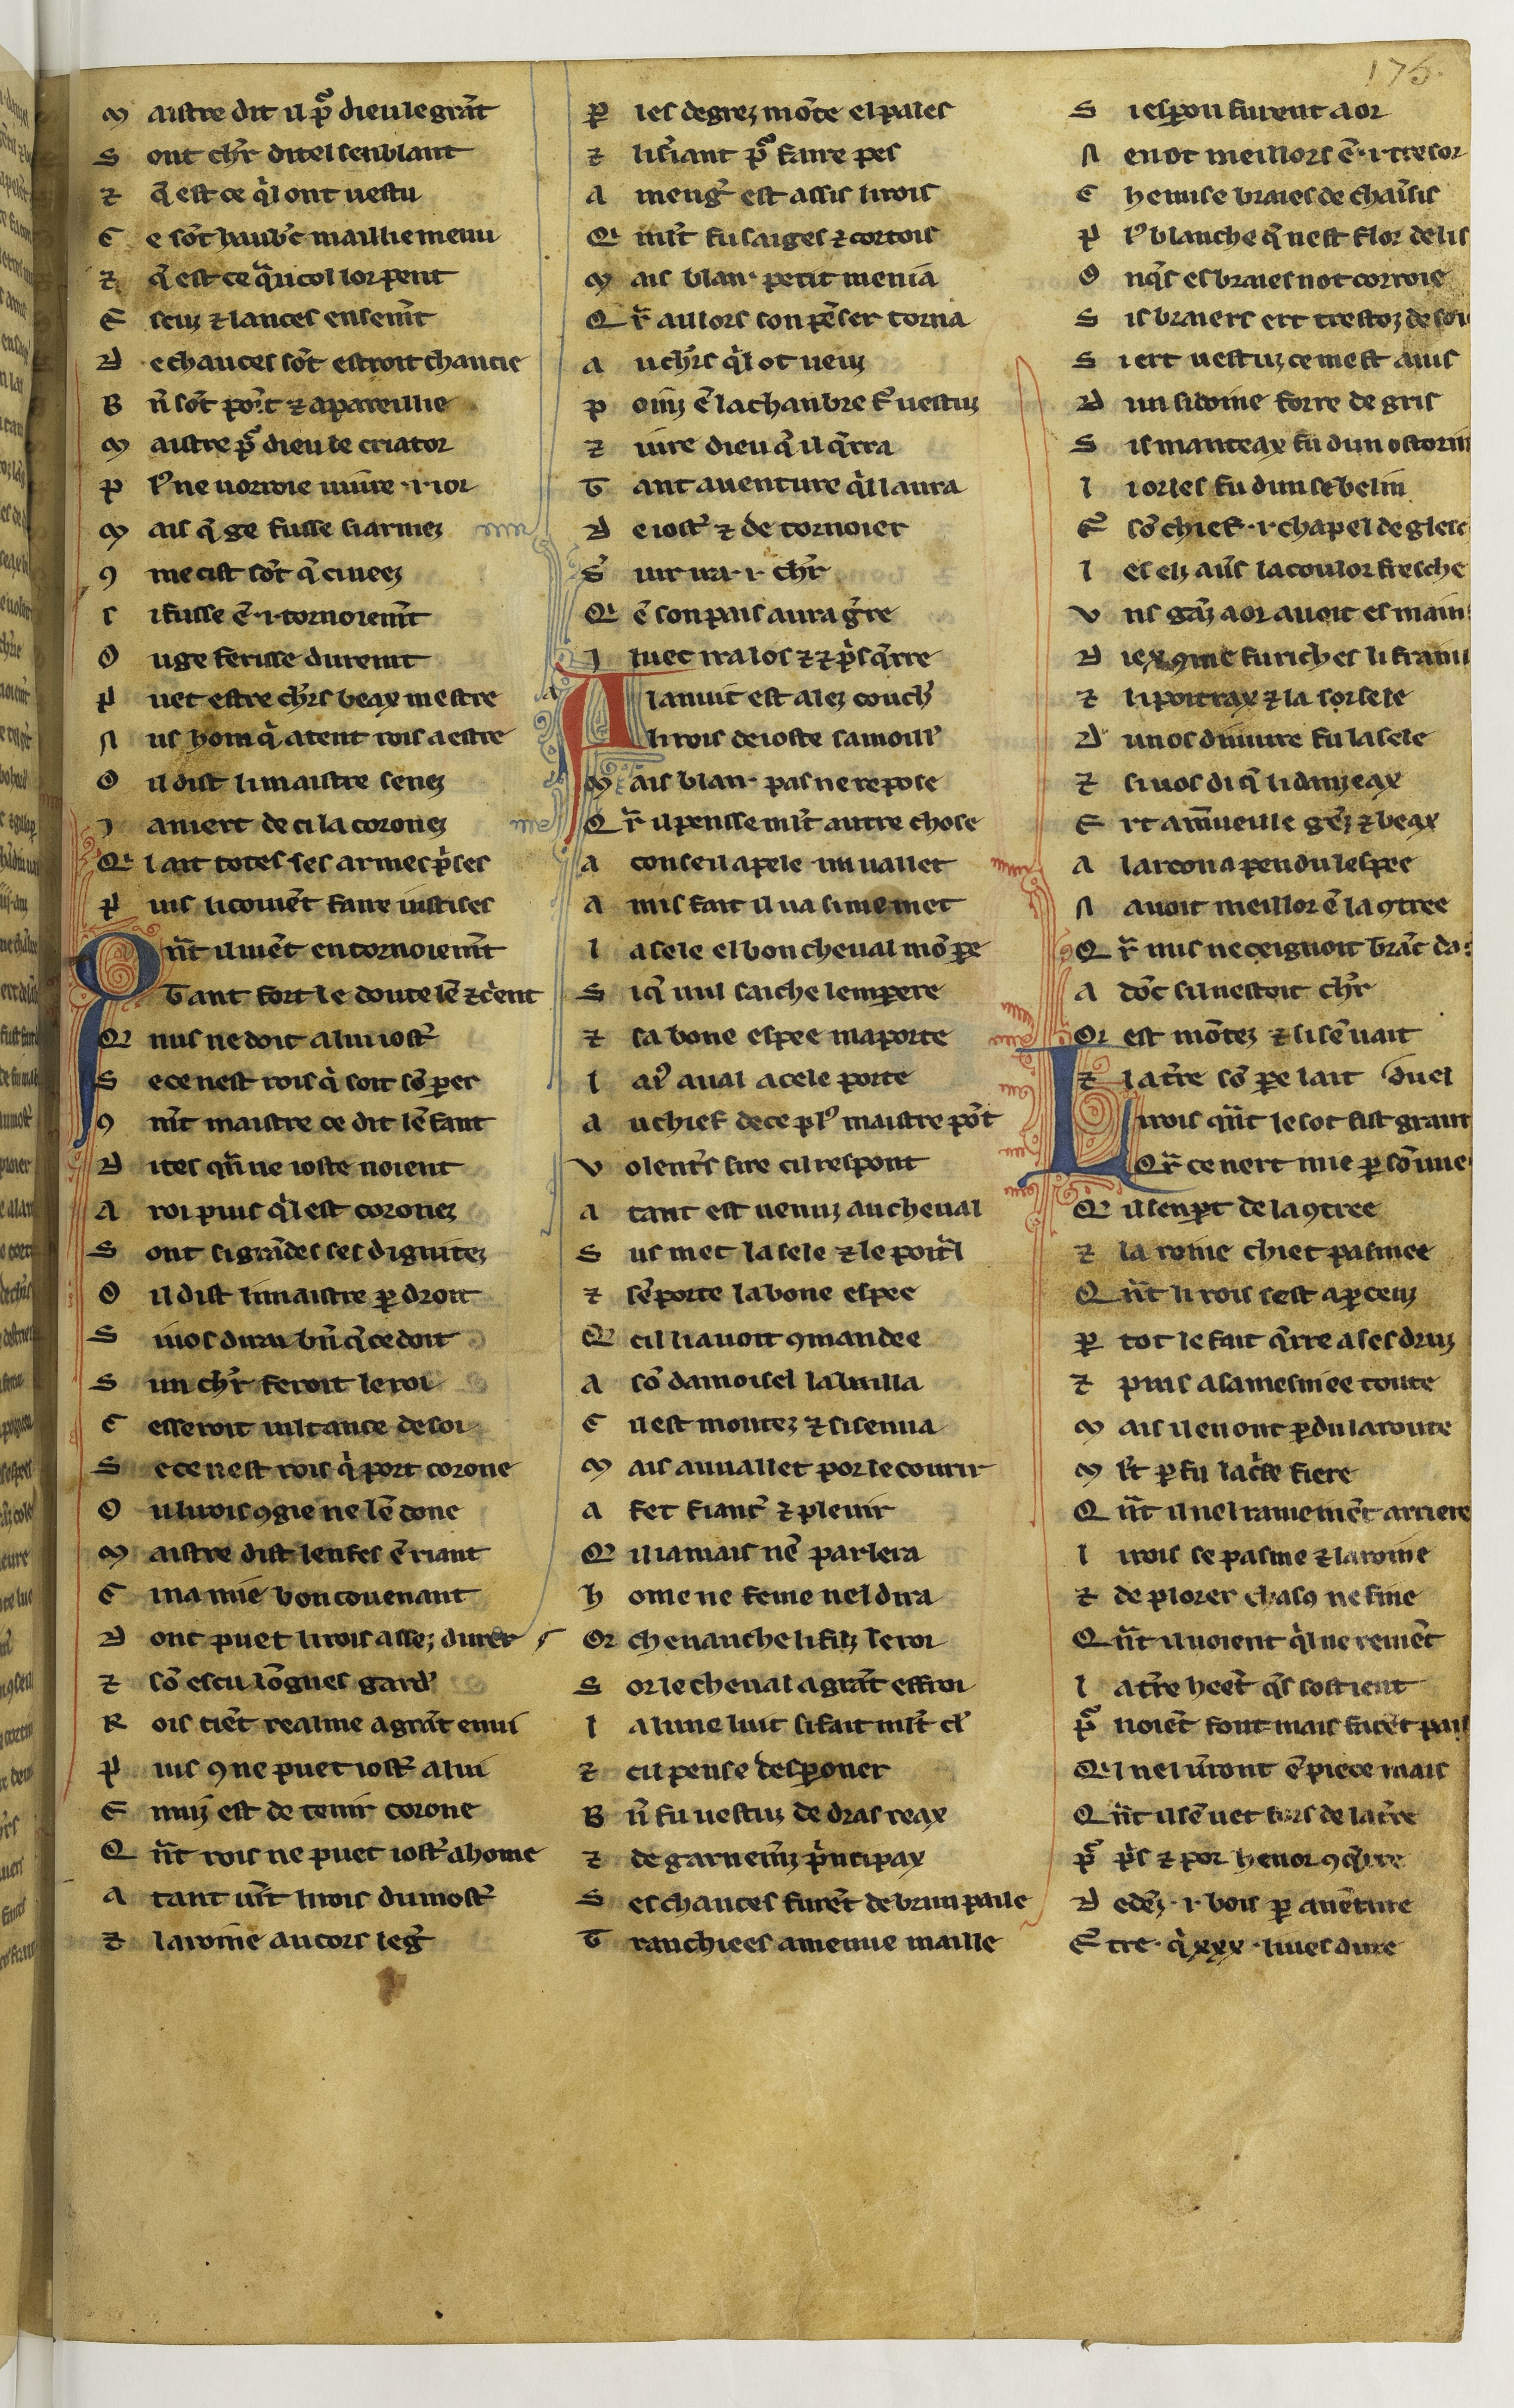 175.
M aistre dit il p̃ dieu le grãt
S ont cħr ditel senblant
⁊ q̃ est ce q̾l ont uestu
C e sõt haub̾c maillie menu
⁊ q̃ est ce q̾u col lor pent
E scuz ⁊ lances ensem̃t
D e chauces sõt estroit chaucie
B n̄ sõt poĩt ⁊ apareillie
M aistre p̃ dieu le criator
P lꝰ ne uorroie uiure ·i· ior
M ais q̃ ge fusse si armez
ꝯ me cist sõt q̃ ci ueez
S i fusse ẽ ·i· tornoiem̃t
O u ge ferisse durem̃t
P uet estre cħrs beax mestre
N us hom q̾ atent rois a estre
O il dist li maistre senez
J a niert de ci la coronez
Q̾ l ait totes ses armes p̾ses
P uis li couiẽt faire iustises
Q ñt il uiẽt en tornoiem̃t
T ant fort le doute lẽ ⁊ c̾ent
Q̾ nus ne doit a lui iost̾
S e ce nest rois q̾ soit sõ per
ꝯ m̃t maistre ce dit lẽfant
D ites q̃ñ ne ioste noient
A roi puis q̾l est coronez
S ont si grãdes ses dignitez
O il dist li maistre ꝑ droit
S i uos dirai bñ q̃ ce doit
S i un cħr feroit le roi
C e seroit uiltance de soi
S e ce nest rois q̾ port corone
O u li rois ꝯgie ne lẽ done
M aistre dist lenfes ẽ riant
C i na mie bon couenant
D ont puet li rois assez durer
⁊ sõ escu lõgues gard̾
R ois tiẽt realme a grãt enui
P uis ꝯ ne puet iost̾ a lui
E nuiz est de tenir corone
Q ñt rois ne puet iost̾ a home
A tant uiñt li rois du most̾
⁊ la roine au cors leg̾
P ar les degrez mõte el pales
⁊ li s̾iant p̃ faire pes
A meng̾ est assis li rois
Q̾ ml̃t fu saiges ⁊ cortois
M ais blan· petit menia
Q r̃ aillors son pẽser torna
A u cħrs q̾l ot ueuz
P oinz ẽ la chanbre ẽ uestuz
⁊ iure dieu q̃ il q̃rra
T ant auenture q̾l laura
D e iost̾ ⁊ de tornoier
S̾ uir ira ·i· cħr
Q̾ ẽ son pais aura g̾re
J luec ira los ⁊ ⁊ p̾s q̃rre
A la nuit est alez couch̾
li rois deioste sa moill̾
M ais blan· pas ne repose
Q r̃ il pensse ml̃t autre chose
A conseil apele ·i· uallet
A mis fait il ua si me met
L a sele el bon cheual mõ pe
S i q̃ nul saiche lenpere
⁊ sa bone espee maporte
L ai̾ aual a cele porte
A u chief de ce plꝰ maistre põt
V olent̾s sire cil respont
A tant est uenuz au cheual
S us met la sele ⁊ le poit̾l
⁊ sẽ porte la bone espee
Q̾ cil li auoit ꝯmandee
A sõ damoisel la bailla
C il est montez ⁊ si sen ua
M ais au uallet por le courir
A fet fianc̾ ⁊ pleuir
Q̾ il iamais nẽ parlera
H ome ne feme nel dira
Or cheuauche li filz le roi
S or le cheual a grãt effroi
L a lune luit si fait ml̃t cl̾
⁊ cil pense desp̱oner
B ñ fu uestuz de dras reax
⁊ de garnem̃z p̾ncipax
S es chauces furẽt de brun paile
T ranchiees a menue maille
S i esp̱on furent a or
N en ot meillors ẽ ·i· tresor
C hemise braies de chaĩsis
P lꝰ blanche q̃ nest flor de lis
O nq̃s es braies not corroie
S is braiers ert trestoz de soi
S i ert uestuz ce mest auis
D un sidoine forre de gris
S is manteax fu dun ostorin
L i orles fu dun sebelin
E̾ sõ chief ·i· chapel de glesc
L es elz au̾s la coulor fresche
V ns gãz a or auoit es mains
D iex ꝯ me fu riches li frains
⁊ li poitrax ⁊ la sorsele
D un os diuuire fu la sele
⁊ si uos di q̃ li danzeax
E rt a m̾ueille gẽz ⁊ beax
A larcon a pendu lespee
N auoit meillor ẽ la ꝯtree
Q r̃ nus ne ceignoit brãt da
A dõc sil nestoit cħr
Or est mõtez ⁊ si sẽ uait
⁊ la t̾re sõ pe lait duel
L i rois q̃ñt le sot fist grant
Q r̃ ce nert mie ꝑ sõ uue
Q̾ il senꝑt de la ꝯtree
⁊ la roine chiet pasmee
Q ñt li rois sest aꝑceuz
P ar tot le fait q̃rre a ses druz
⁊ puis a sa mesniee toute
M ais il en ont ꝑdu la route
M l̃t ꝑ fu lac̾re fiere
Q ñt il nel rameniẽt arriere
L i rois se pasme ⁊ la roine
⁊ de plorer chasꝯ ne fine
Q ñt il uoient q̾l ne reuiẽt
L a t̾re heẽt q̃s sostient
P̃ noiẽt font mais facẽt pais
Q̾ l nel u̾ront ẽ piece mais
Q ñt il sẽ uet fors de la t̾re
P̃ p̾s ⁊ por henor ꝯq̾rre
D edẽz ·i· bois ꝑ auẽture
E̾ tre· q̾ xxx · liues dure